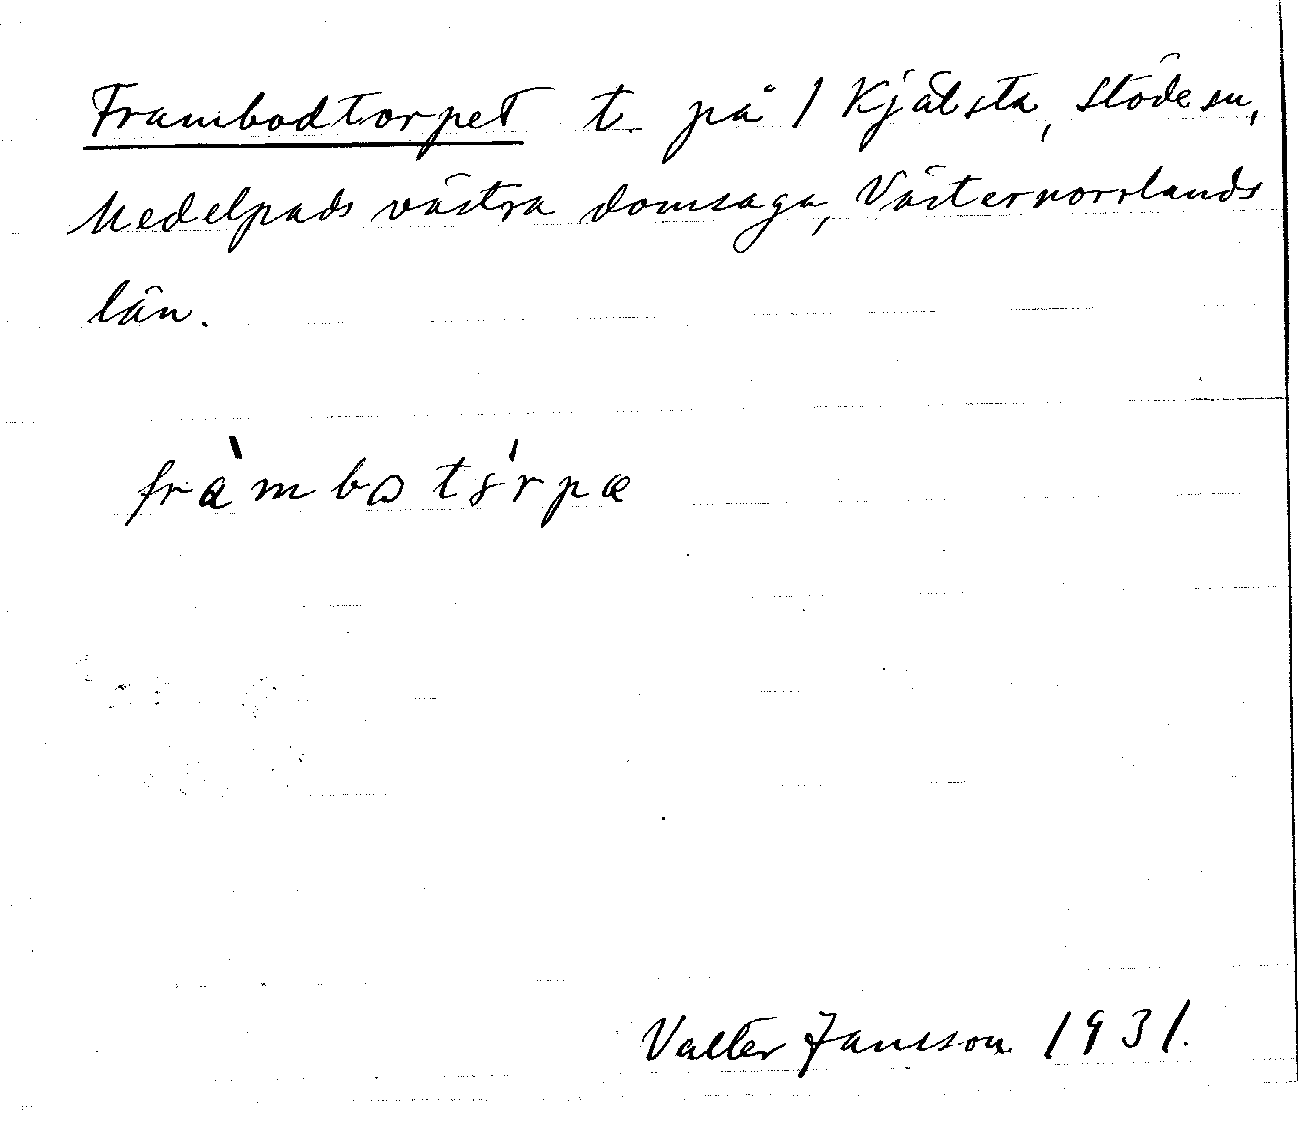 Frambodtorpet t. på 1 Kjälsta, Stöde sn,
Medelpads västra domsaga, Västernorrlands
län.
Valter Jansson 1931.